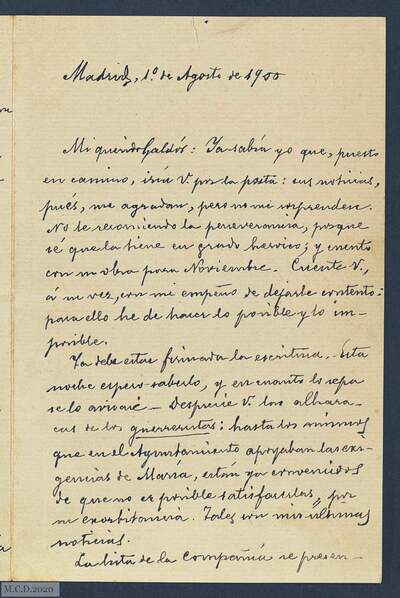 Madrid, 1.º de Agosto de 1900
Mi querido Galdós: Ya sabía yo que, puesto
en camino, iría V. por la posta: sus noticias,
pués, me agradan, pero no me sorprenden.
No le recomiendo la perseverancia, porque
sé que la tiene en grado heroico; y cuento
con su obra para Noviembre. Cuente V.,
á su vez, con mi empeño de dejarle contento:
para ello he de hacer lo posible y lo im-
posible.
Ya debe estar firmada la escritura. Esta
noche espero saberlo, y en cuanto lo sepa
se lo avisaré — Desprecie V. las alhara-
cas de los guerreristas: hasta los mismos
que en el Ayuntamiento apoyaban las exi-
gencias de María, están ya convencidos
de que no es posible satisfacerlas, por
su exorbitancia. Tales son mis últimas
noticias.
La lista de la compañía se presen-
M.C.D.2020